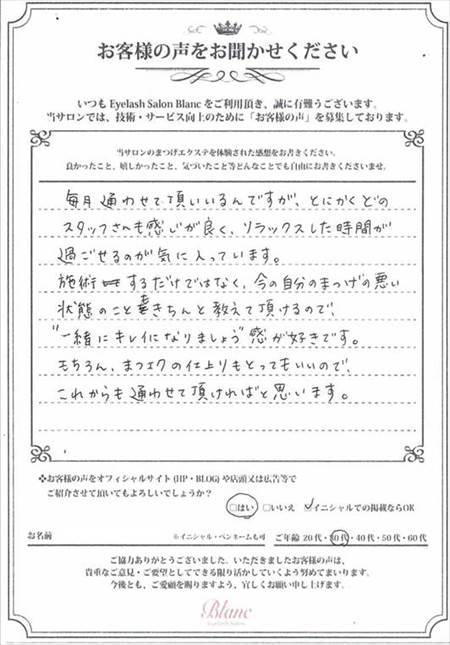 お客様の声をお聞かせください
いつも Eyelash Salon Blanc をご利用頂き、誠に有難うございます。
当サロンでは、技術・サービス向上のために「お客様の声」を募集しております。
当サロンのまつげエクステを体験された感想をお書きください。
良かったこと、嬉しかったこと、気づいたこと等どんなことでも自由にお書きくださいませ。
毎月通わせて頂いいるんですが、とにかくどの
スタッフさんも感じが良く、リラックスした時間が
過ごせるのが気に入っています。
施術 するだけではなく、今の自分のまつげの悪い
状態のこと きちんと教えて頂けるので、
"一緒にキレイになりましょう"感が好きです。
もちろん、まつエクの仕上りもとってもいいので、
これからも通わせて頂ければと思います。
❖お客様の声をオフィシャルサイト (HP・BLOG) や店頭又は広告等で
ご紹介させて頂いてもよろしいでしょうか？
□はい □いいえ ✓イニシャルでの掲載ならOK
お名前 ※イニシャル・ペンネームも可 ご年齢 20代・30代・40代・50代・60代
ご協力ありがとうございました。いただきましたお客様の声は、
貴重なご意見・ご要望としてできる限り活かしていくよう努めてまいります。
今後とも、ご愛顧を賜りますよう、宜しくお願い申し上げます。
Blanc
Eyelash Salon